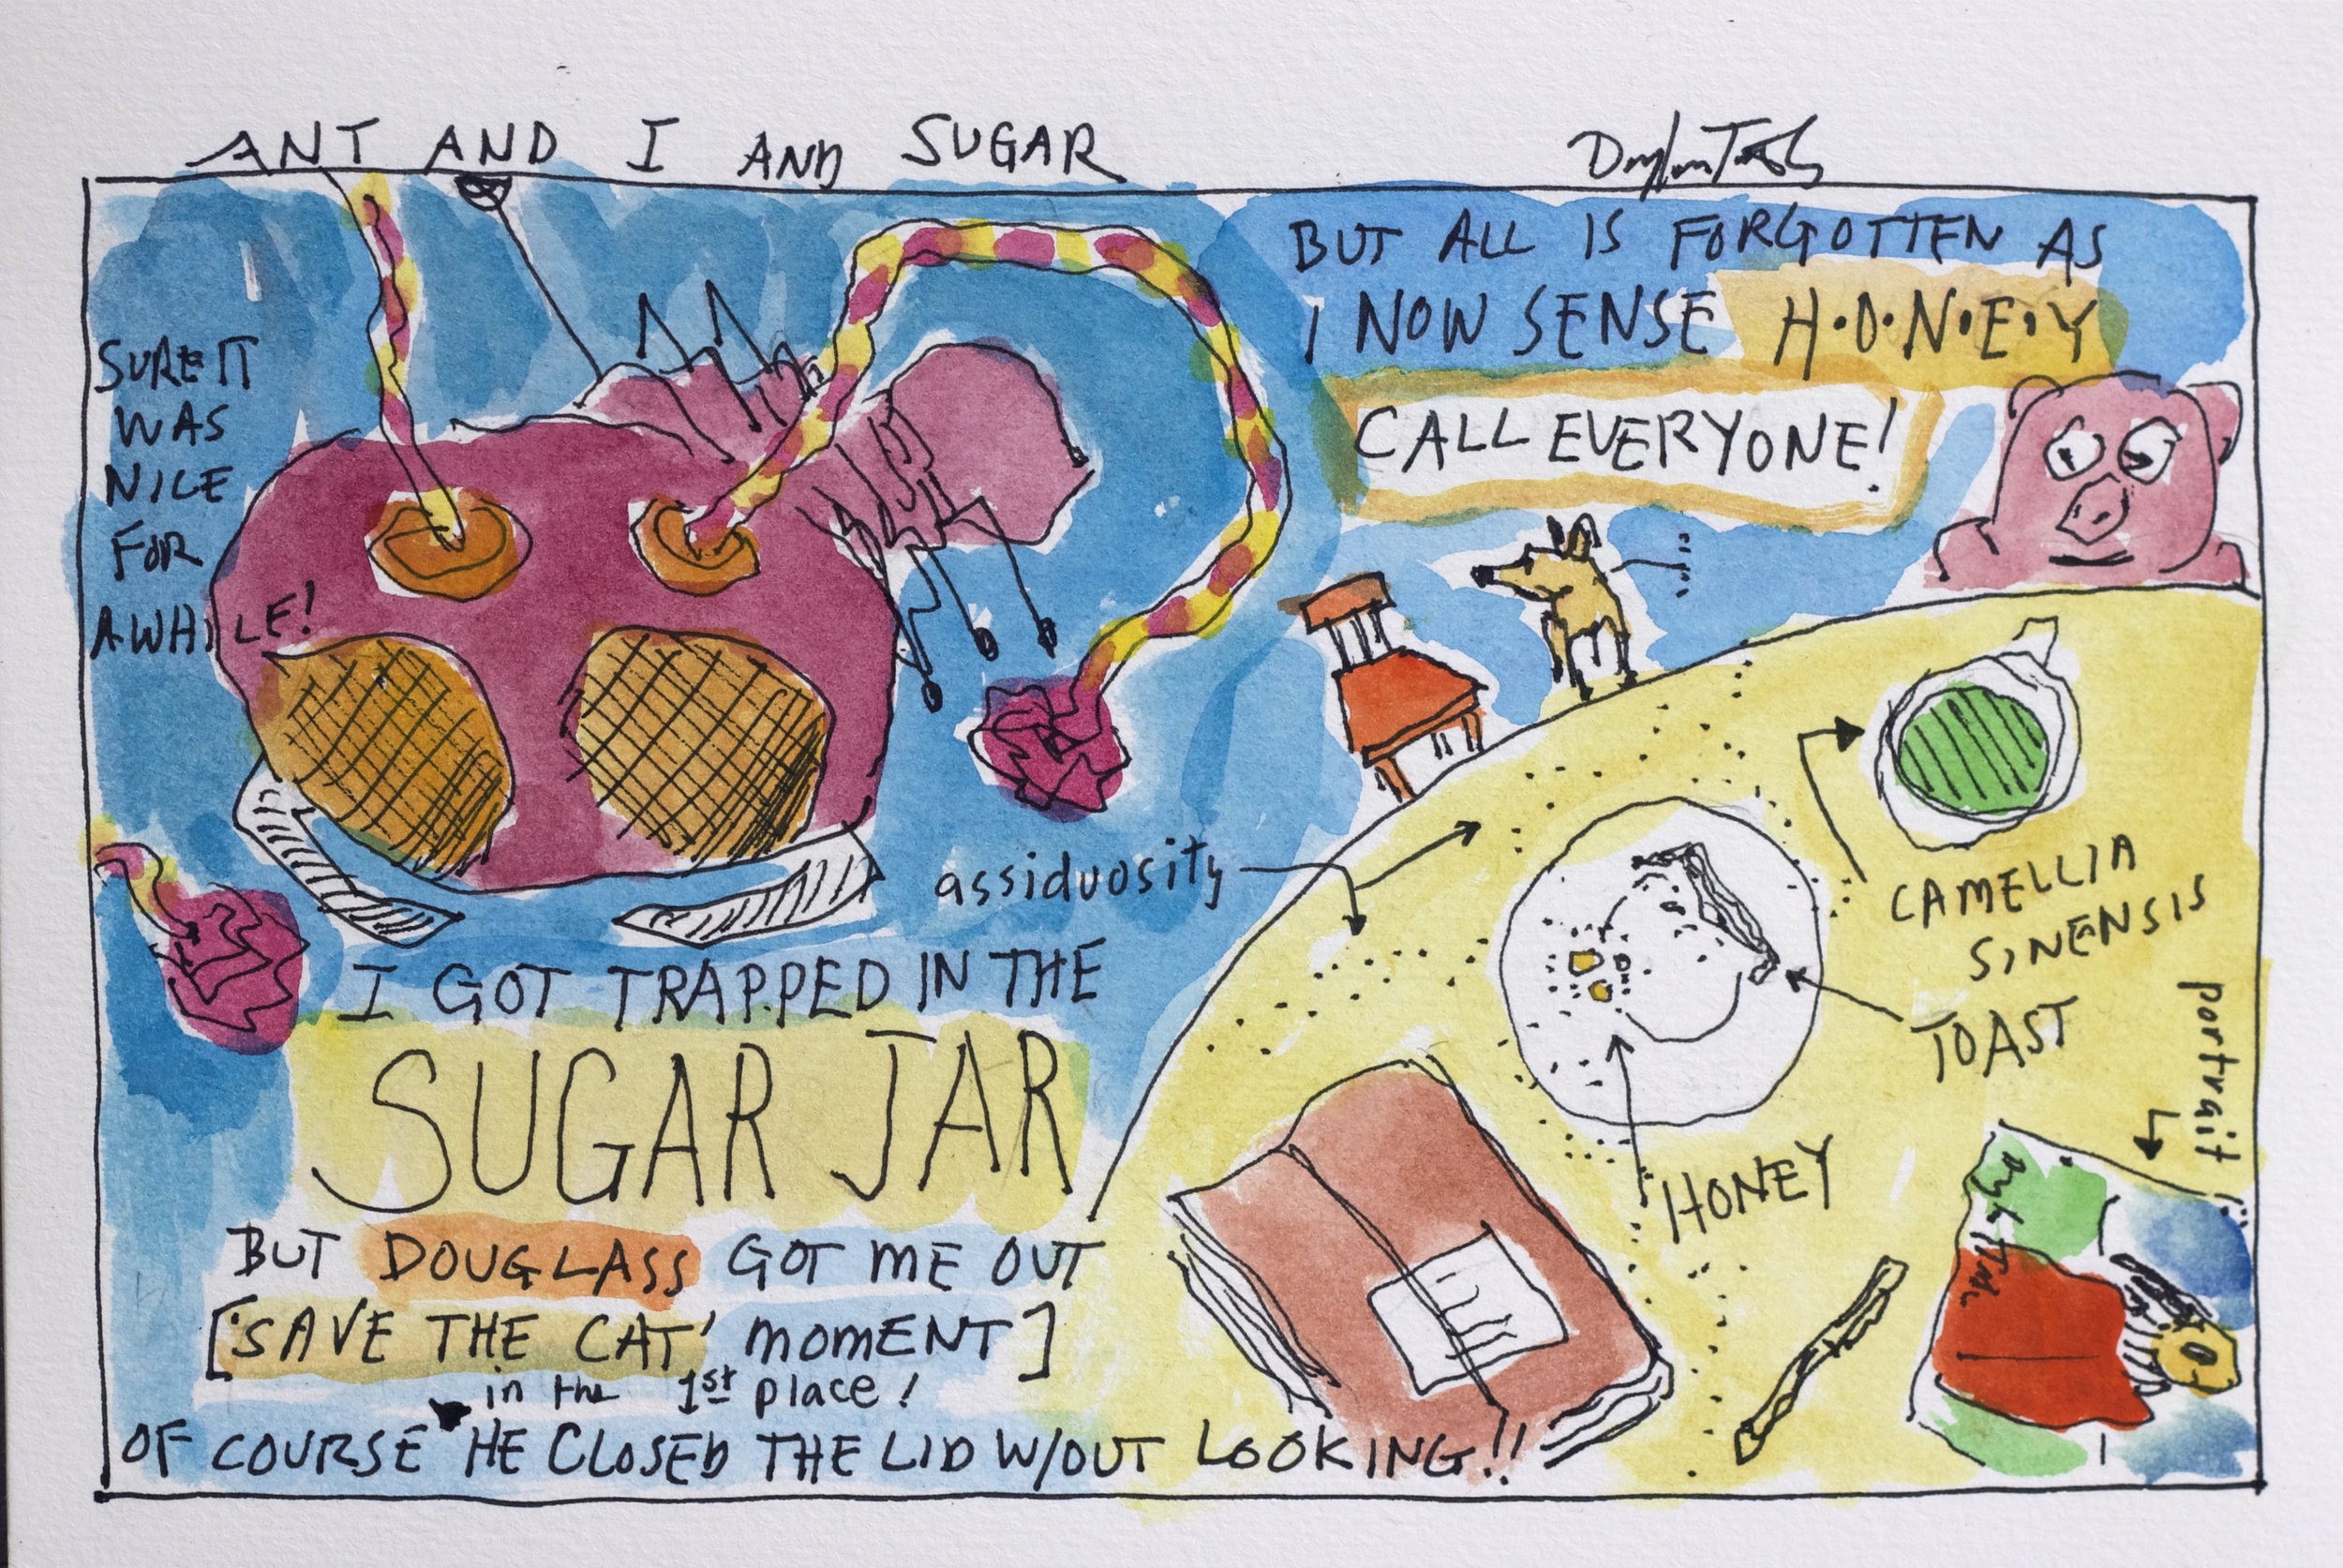 ANT AND I AND SUGAR
SURE IT
WAS
NICE
FOR
AWHILE!
I GOT TRAPPED IN THE
SUGAR JAR
BUT DOUGLASS GOT ME OUT
['SAVE THE CAT' MOMENT]
in the 1st place!
OF COURSE HE CLOSED THE LID W/OUT LOOKING!!
BUT ALL IS FORGOTTEN AS
I NOW SENSE H•O•N•E•Y
CALL EVERYONE!
assiduosity
CAMELLIA
SINENSIS
TOAST
HONEY
portrait